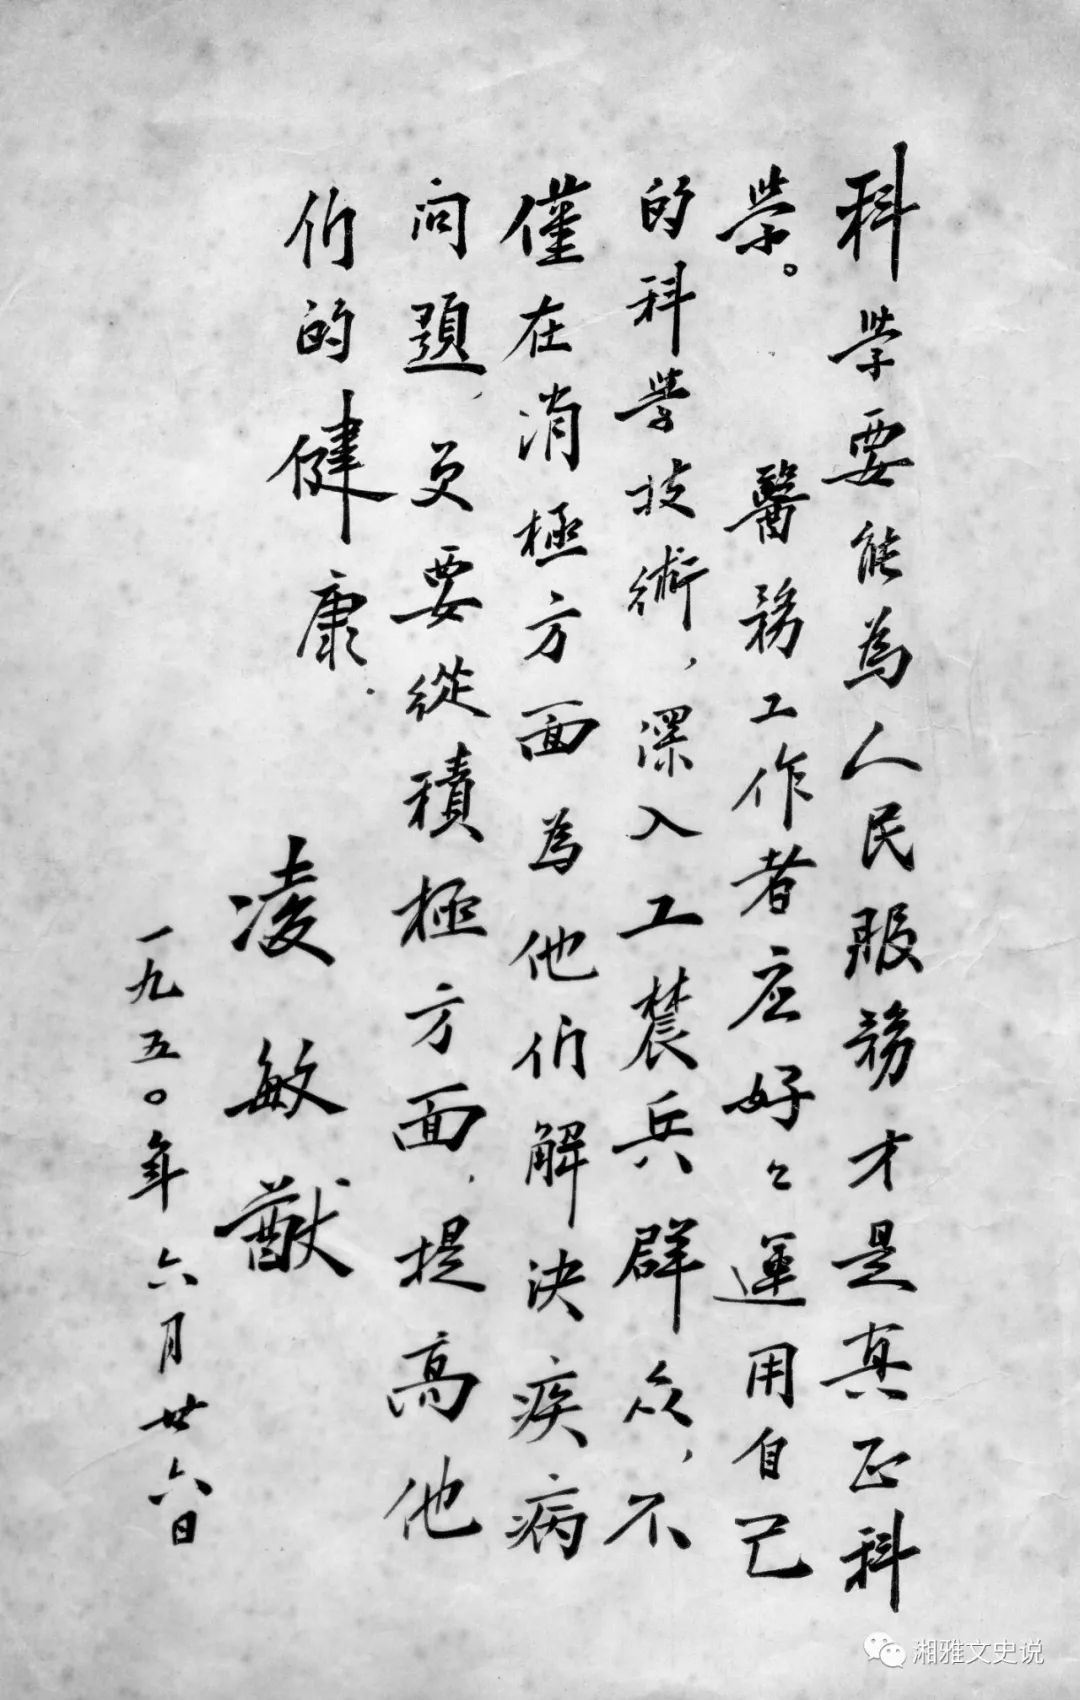 科学要能為人民服務才是真正科
学。 醫務工作者应好〻運用自己
的科学技術，深入工農兵群众，不
僅在消極方面為他们解決疾病
问題，更要從積極方面，提高他
们的健康．
凌敏猷
一九五〇年六月廿六日
湘雅文史说